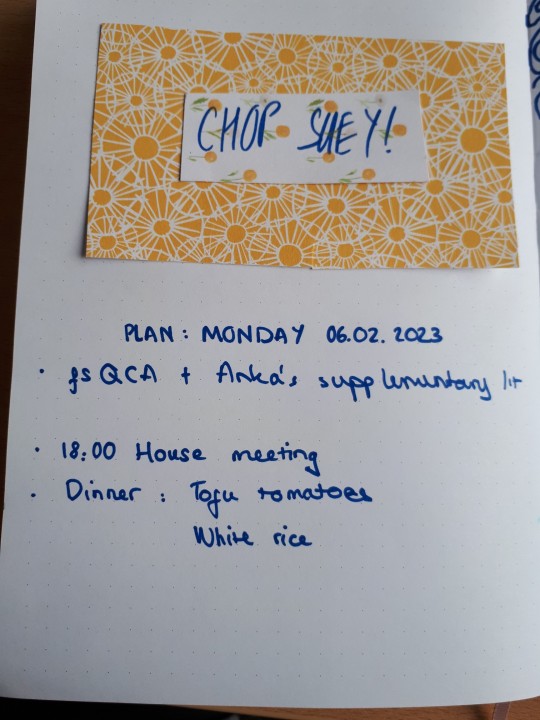 CHOP SUEY!
PLAN: MONDAY 06.02.2023
• fsQCA + Anka's supplementary lit
• 18:00 House meeting
• Dinner: Tofu tomatoes
White rice